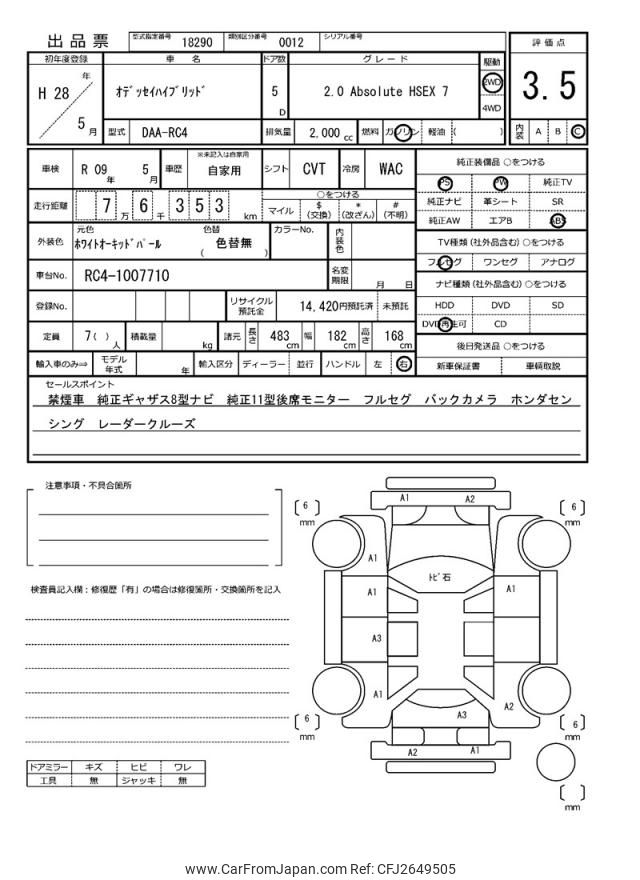 出品票 型式指定番号 18290 類別区分番号 0012 シリアル番号
初年度登録 車 名 ドア数 グレード 駆動 評価点
H 28 年 5 月 オデッセイハイブリッド 5 D 2.0 Absolute HSEX 7 2WD 4WD 3.5
型式 DAA-RC4 排気量 2,000 cc 燃料 ガソリン 軽油 ( ) 内装 A B C
車検 R 09 年 5 月 車歴 ※未記入は自家用 自家用 シフト CVT 冷房 WAC 純正装備品 ○をつける
PS PW 純正TV
走行距離 7 万 6 千 3 5 3 km ○をつける 純正ナビ 革シート SR
マイル $ (交換) * (改ざん) # (不明) 純正AW エアB ABS
外装色 元色 ホワイトオーキッドパール 色替 ( 色替無 ) カラーNo. 内装色 TV種類 (社外品含む) ○をつける
フルセグ ワンセグ アナログ
車台No. RC4-1007710 名変期限 月 日 ナビ種類 (社外品含む) ○をつける
登録No. リサイクル預託金 14,420円預託済 未預託 HDD DVD SD
DVD再生可 CD
定員 7 ( ) 人 積載量 kg 諸元 長さ 483 cm 幅 182 cm 高さ 168 cm 後日発送品 ○をつける
輸入車のみ⇒ モデル年式 年 輸入区分 ディーラー 並行 ハンドル 左 右 新車保証書 車輌取説
セールスポイント
禁煙車 純正ギャザス8型ナビ 純正11型後席モニター フルセグ バックカメラ ホンダセン
シング レーダークルーズ
注意事項・不具合箇所
検査員記入欄：修復歴「有」の場合は修復箇所・交換箇所を記入
[ 6 ] mm A1 A2 [ 6 ] mm
A1
トビ石
A1 A1
A3
A1 A2
A3
[ 6 ] mm A2 A1 [ 6 ] mm
[ ] mm
ドアミラー キズ ヒビ ワレ
工具 無 ジャッキ 無
www.CarFromJapan.com Ref: CFJ2649505